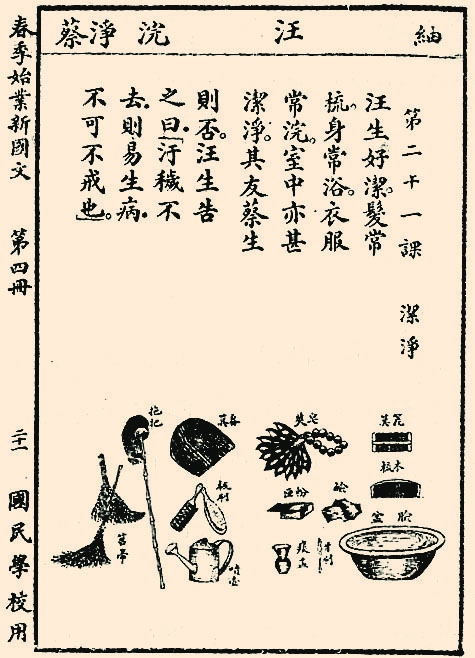 紬 汪 浣 淨 蔡
第二十一課 潔淨
汪生好潔。髮常
梳。身常浴。衣服
常浣。室中亦甚
潔淨。其友蔡生
則否。汪生告
之曰。「汙穢不
去。則易生病。
不可不戒也。」
木梳
臉盆
皂莢
粉匣
牙刷
痰盂
畚箕
板刷
噴壺
拖把
笤帚
春季始業新國文 第四冊 二十一 國民學校用